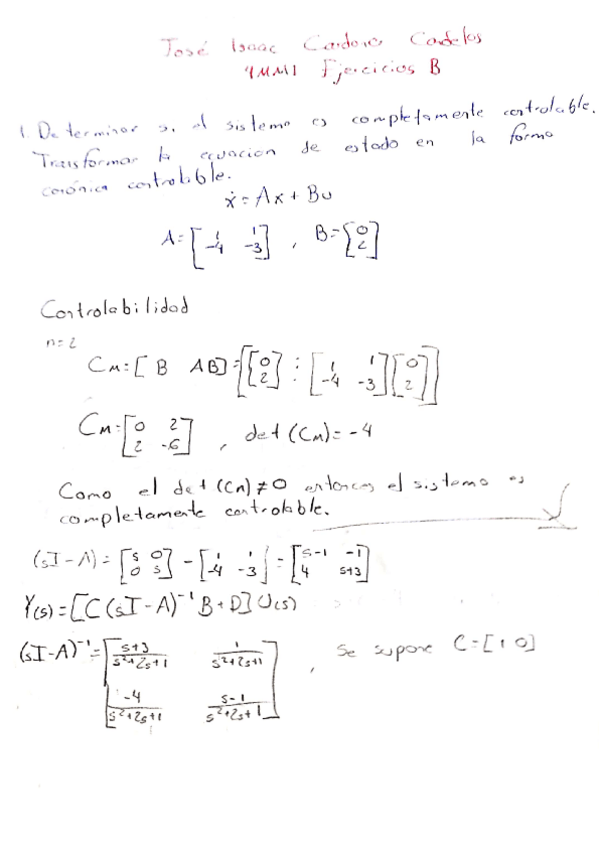 José Isaac Cardona Cadelas
4MM1 Ejercicios B
1. Determinar si el sistema es completamente controlable.
Transformar la ecuacion de estado en la forma
canónica controlable.
ẋ = Ax + Bu
A = [1 1; -4 -3] , B = [0; 2]
Controlabilidad
n=2
CM = [B AB] = [[0; 2] ⋮ [1 1; -4 -3][0; 2]]
CM = [0 2; 2 -6] , det (CM) = -4
Como el det (CM) ≠ 0 entonces el sistema es
completamente controlable.
(sI - A) = [s 0; 0 s] - [1 1; -4 -3] = [s-1 -1; 4 s+3]
Y(s) = [C (sI - A)⁻¹ B + D] U(s)
(sI - A)⁻¹ = [(s+3)/(s²+2s+1) 1/(s²+2s+1); -4/(s²+2s+1) (s-1)/(s²+2s+1)] , Se supone C = [1 0]